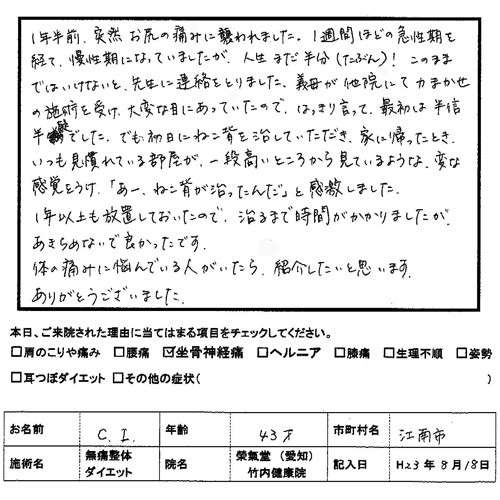 1年半前、突然お尻の痛みに襲われました。1週間ほどの急性期を
経て、慢性期になっていましたが、人生まだ半分(たぶん)!このまま
ではいけないと、先生に連絡をとりました。義母が他院にて力まかせ
の施術を受け、大変な目にあっていたので、はっきり言って、最初は半信
半疑でした。でも初日にねこ背を治していただき、家に帰ったとき、
いつも見慣れている部屋が、一段高いところから見ているような、変な
感覚をうけ、「あー、ねこ背が治ったんだ」と感激しました。
1年以上も放置しておいたので、治るまで時間がかかりましたが、
あきらめないで良かったです。
体の痛みに悩んでいる人がいたら、紹介したいと思います。
ありがとうございました。
本日、ご来院された理由に当てはまる項目をチェックしてください。
□肩のこりや痛み □腰痛 ☑坐骨神経痛 □ヘルニア □膝痛 □生理不順 □姿勢
□耳つぼダイエット □その他の症状( )
お名前 C. I. 年齢 43才 市町村名 江南市
施術名 無痛整体 ダイエット 院名 榮氣堂(愛知) 竹内健康院 記入日 H23年8月18日